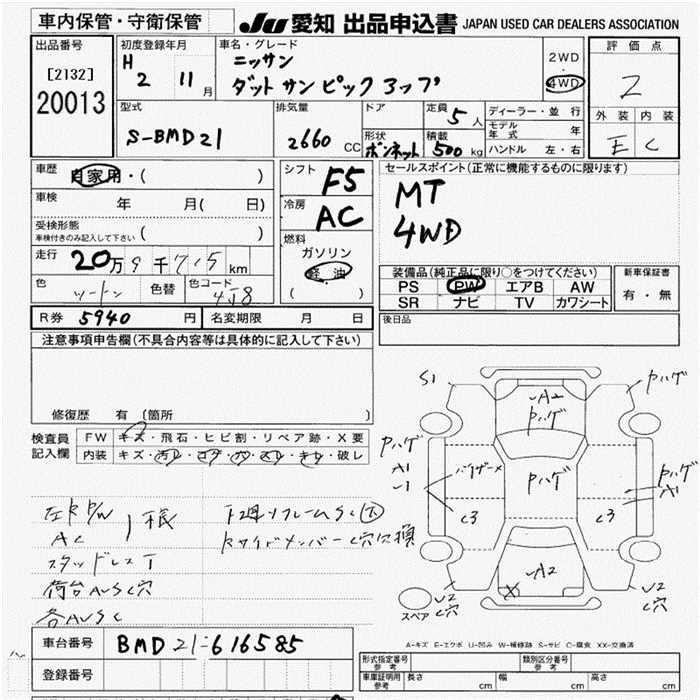 車内保管・守衛保管
JU 愛知 出品申込書 JAPAN USED CAR DEALERS ASSOCIATION
出品番号
[2132]
20013
初度登録年月
H 2 11月
車名・グレード
ニッサン
ダットサンピックアップ
2WD
・
4WD
評価点
2
外装 内装
E C
型式
S-BMD21
排気量
2660 CC
ドア
形状
ボンネット
定員
5人
積載
500kg
ディーラー・並行
モデル年式 年
ハンドル 左・右
車歴
自家用・( )
車検 年 月( 日)
受検形態
車検付きのみ記入して下さい ( )
走行 20万9千715km
色 ツートン 色替 色コード 4J8
シフト
F5
冷房
AC
燃料
ガソリン
軽油
( )
セールスポイント(正常に機能するものに限ります)
MT
4WD
装備品(純正品に限り○をつけてください)
PS PW エアB AW
SR ナビ TV カワシート
新車保証書
有・無
R券 5940円 名変期限 月 日
後日品
注意事項申告欄(不具合内容等は具体的に記入して下さい)
修復歴 有 [箇所
検査員記入欄
FW キズ・飛石・ヒビ割・リペア跡・X要
内装 キズ・汚レ・コゲ・穴・スレ・キレ・破レ
左R P/W
AC
スタッドレスT
荷台AUSC穴
各AUSC
下廻リフレームSC大
RサイドメンバーC穴交換
S1
A2
Pハゲ
Pハゲ
Pハゲ
A1
バイザーメ
Pハゲ
Pハゲ
A1
C3
C3
X
A2
U2
C穴
U2
C穴
スペア
A-キズ E-エクボ U-凹み W-補修跡 S-サビ C-腐食 XX-交換済
車台番号 BMD21-616585
登録番号
型式指定番号
参考
類別区分番号
参考
車庫証明用
参考
長さ cm 幅 cm 高さ cm